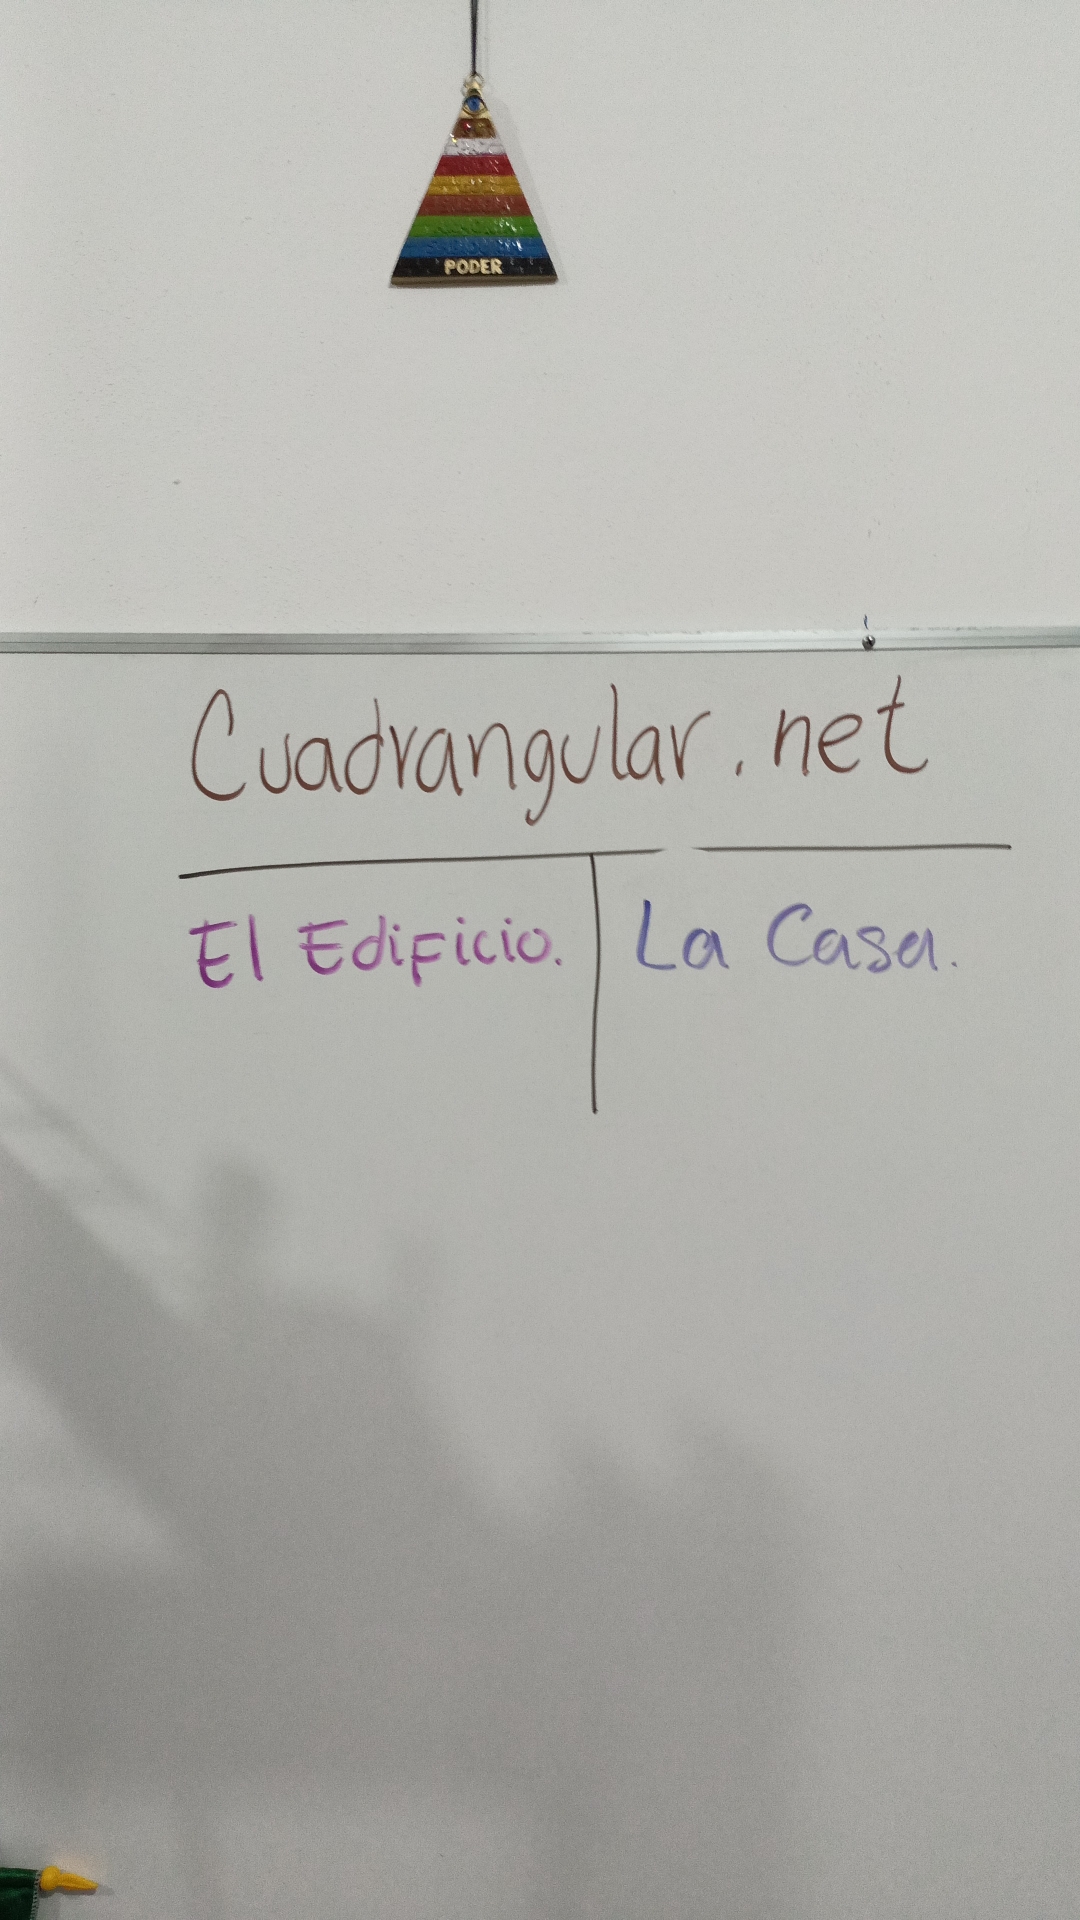 PODER
Cuadrangular.net
El Edificio. La Casa.